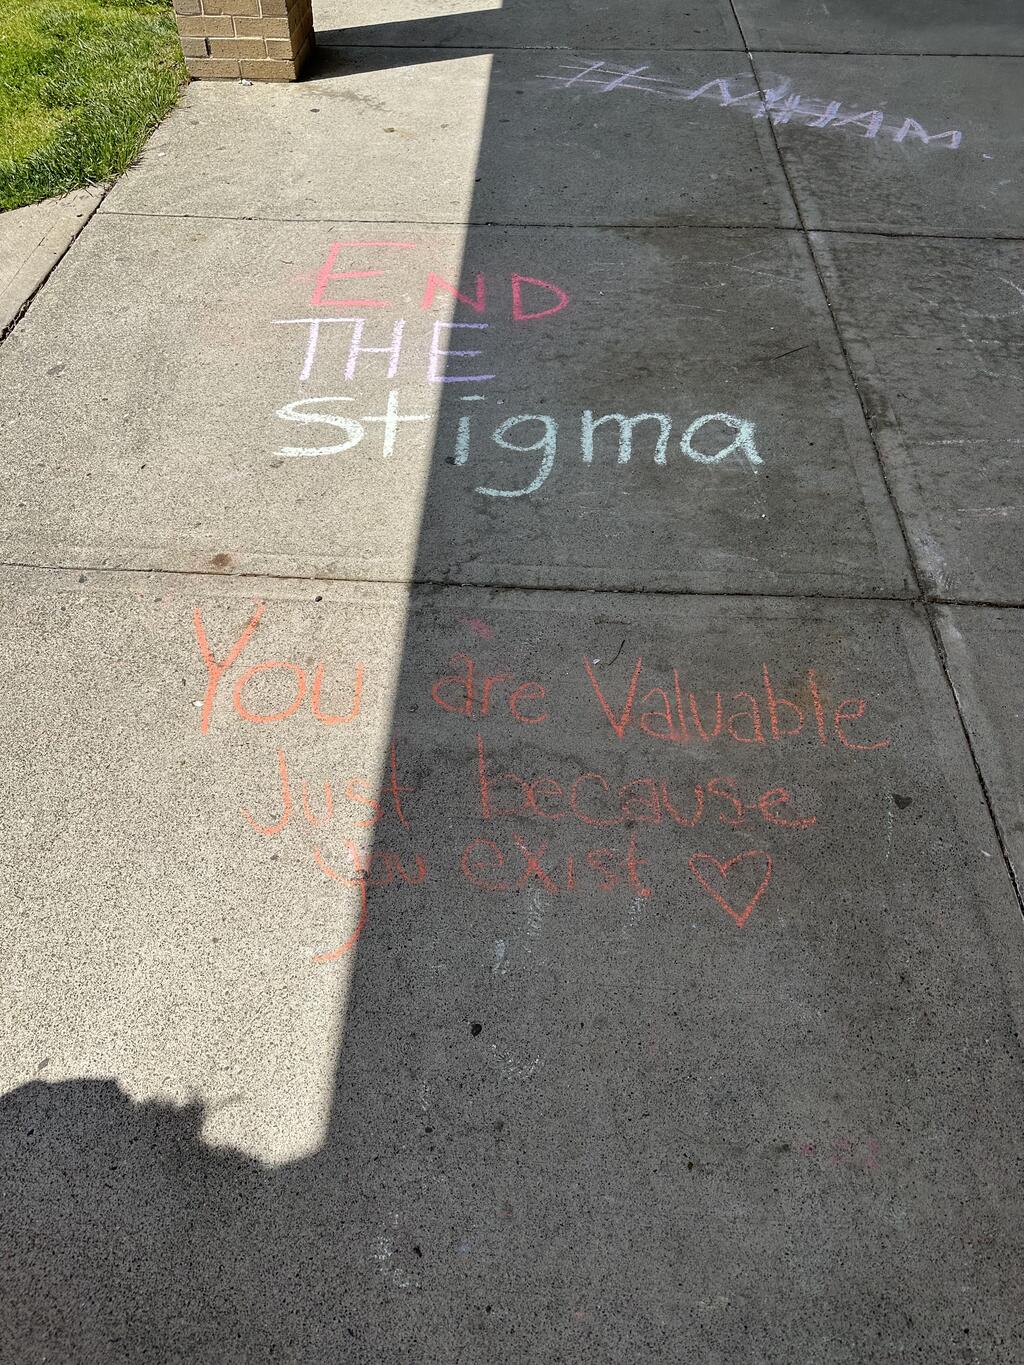 END
THE
Stigma
You are Valuable
Just because
you exist